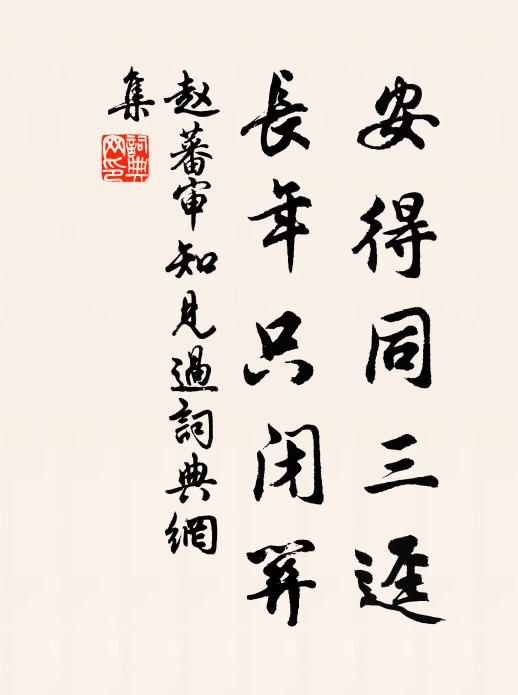 安得同三逕
長年只闭関
赵蕃审知見過詞典網
集
詞典网印